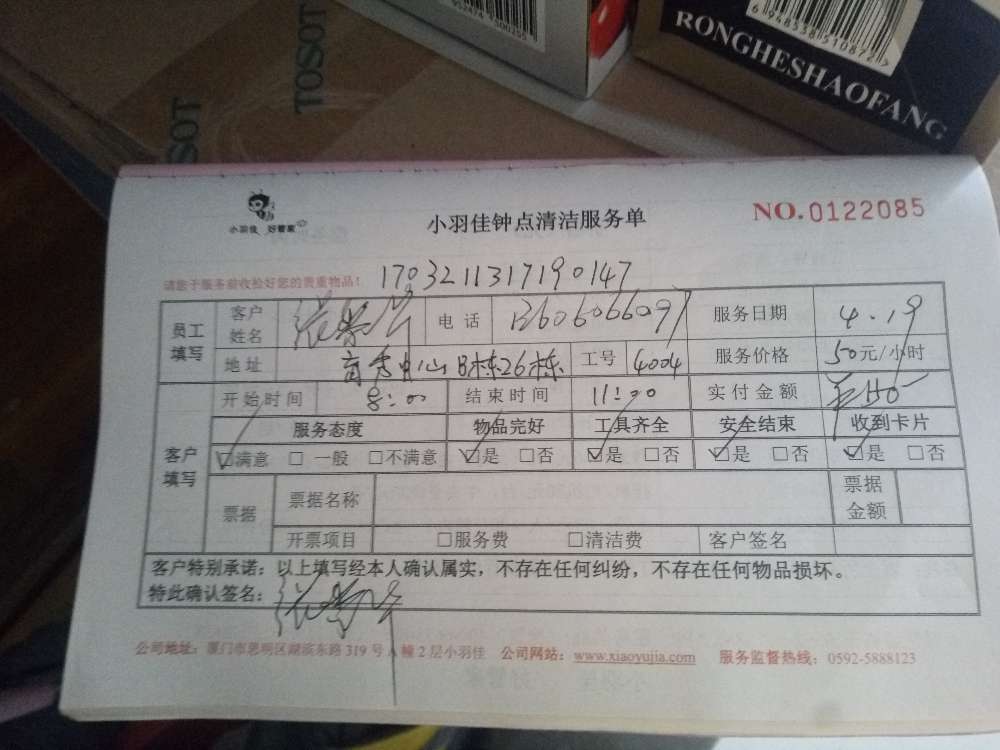 TOSOT
TOSOT
6948538510872
RONGHESHAOFANG
小羽佳 好管家
小羽佳钟点清洁服务单
NO.0122085
请您于服务前收检好您的贵重物品！ 1703211317190147
员工填写 客户姓名 电话 13606066097 服务日期 4.19
地址 B栋26栋 工号 4004 服务价格 50元/小时
客户填写 开始时间 8:00 结束时间 11:00 实付金额
服务态度 物品完好 工具齐全 安全结束 收到卡片
☑满意 □一般 □不满意 ☑是 □否 ☑是 □否 ☑是 □否 ☑是 □否
票据 票据名称 票据金额
开票项目 □服务费 □清洁费 客户签名
客户特别承诺：以上填写经本人确认属实，不存在任何纠纷，不存在任何物品损坏。
特此确认签名：
公司地址：厦门市思明区湖滨东路 319 号 A 幢 2 层小羽佳 公司网站：www.xiaoyujia.com 服务监督热线：0592-5888123